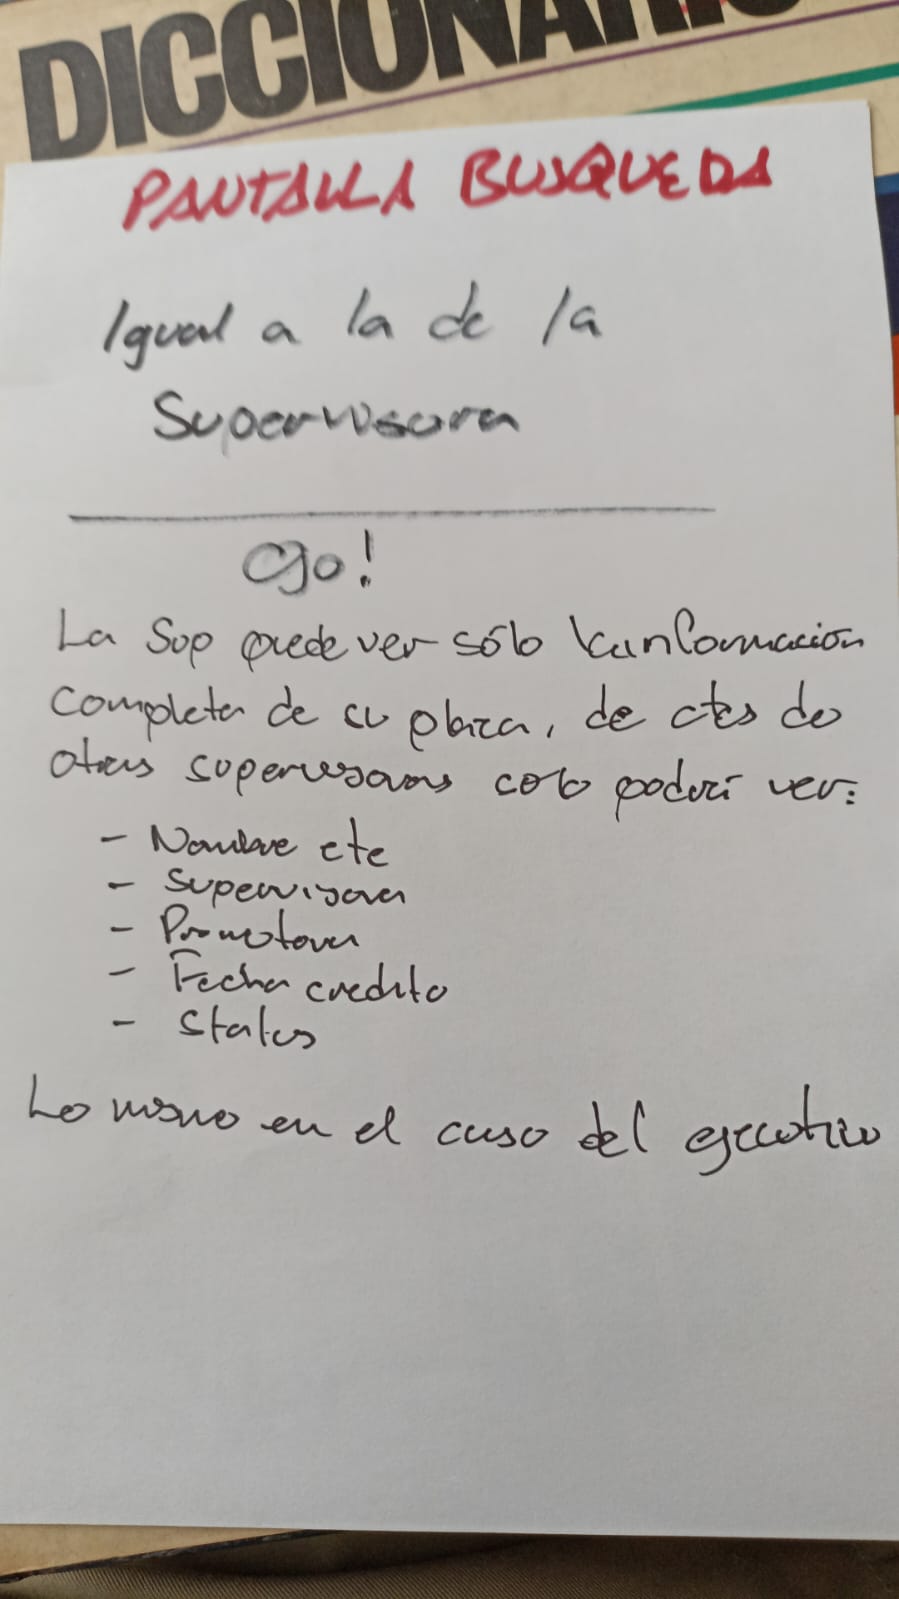 DICCIONARIO
PANTALLA BUSQUEDA
Igual a la de la
Supervisora
Ojo!
La Sup puede ver sólo la información
completa de su plaza, de ctes de
otras supervisoras solo podrá ver:
- Nombre cte
- Supervisora
- Promotora
- Fecha credito
- Status
Lo mismo en el caso del ejecutivo